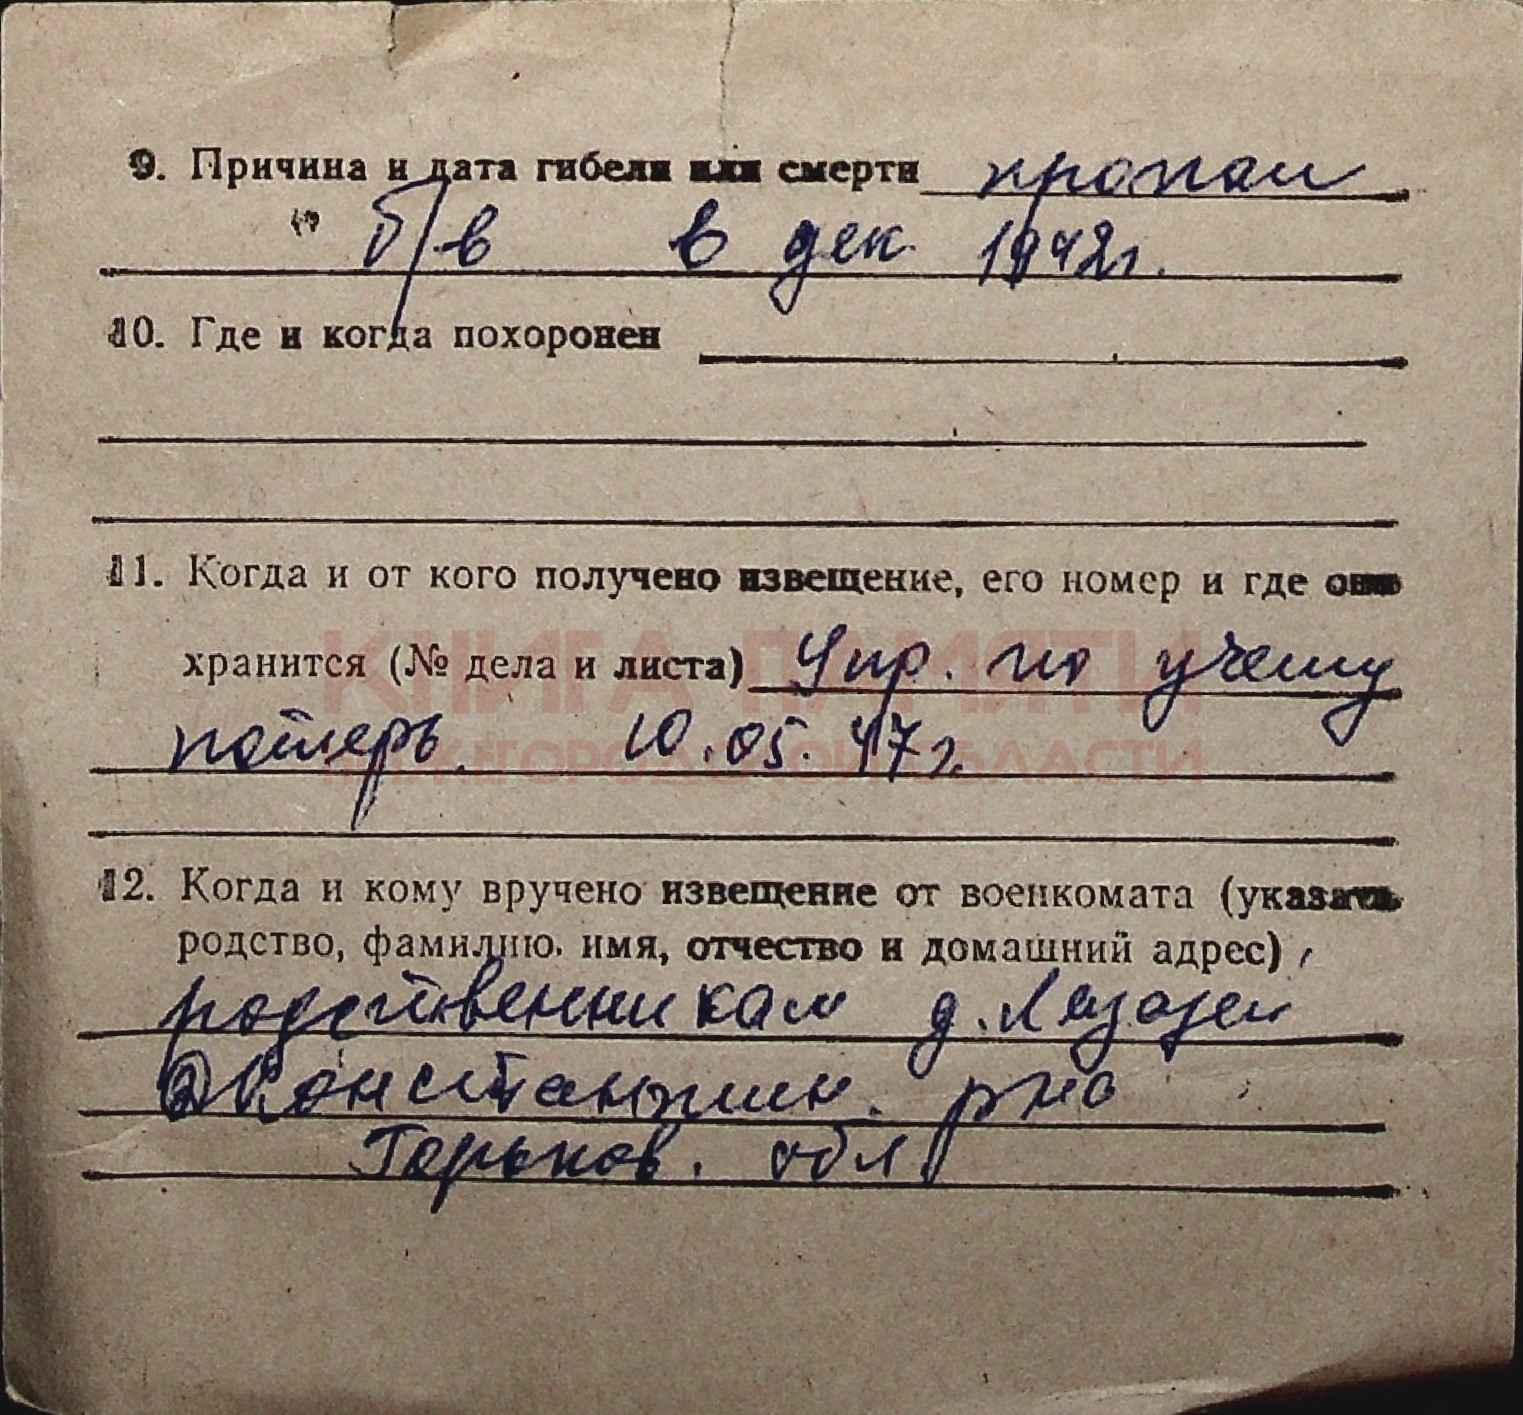 9. Причина и дата гибели или смерти пропал
" б/в в дек. 1942г.
10. Где и когда похоронен
11. Когда и от кого получено извещение, его номер и где оно
хранится (№ дела и листа) Упр. по учету
КНИГА ПАМЯТИ
потерь. 10.05.47г.
НИЖЕГОРОДСКОЙ ОБЛАСТИ
12. Когда и кому вручено извещение от военкомата (указать
родство, фамилию, имя, отчество и домашний адрес)
родственникам д.
Константин. р-на
Горьков. обл.